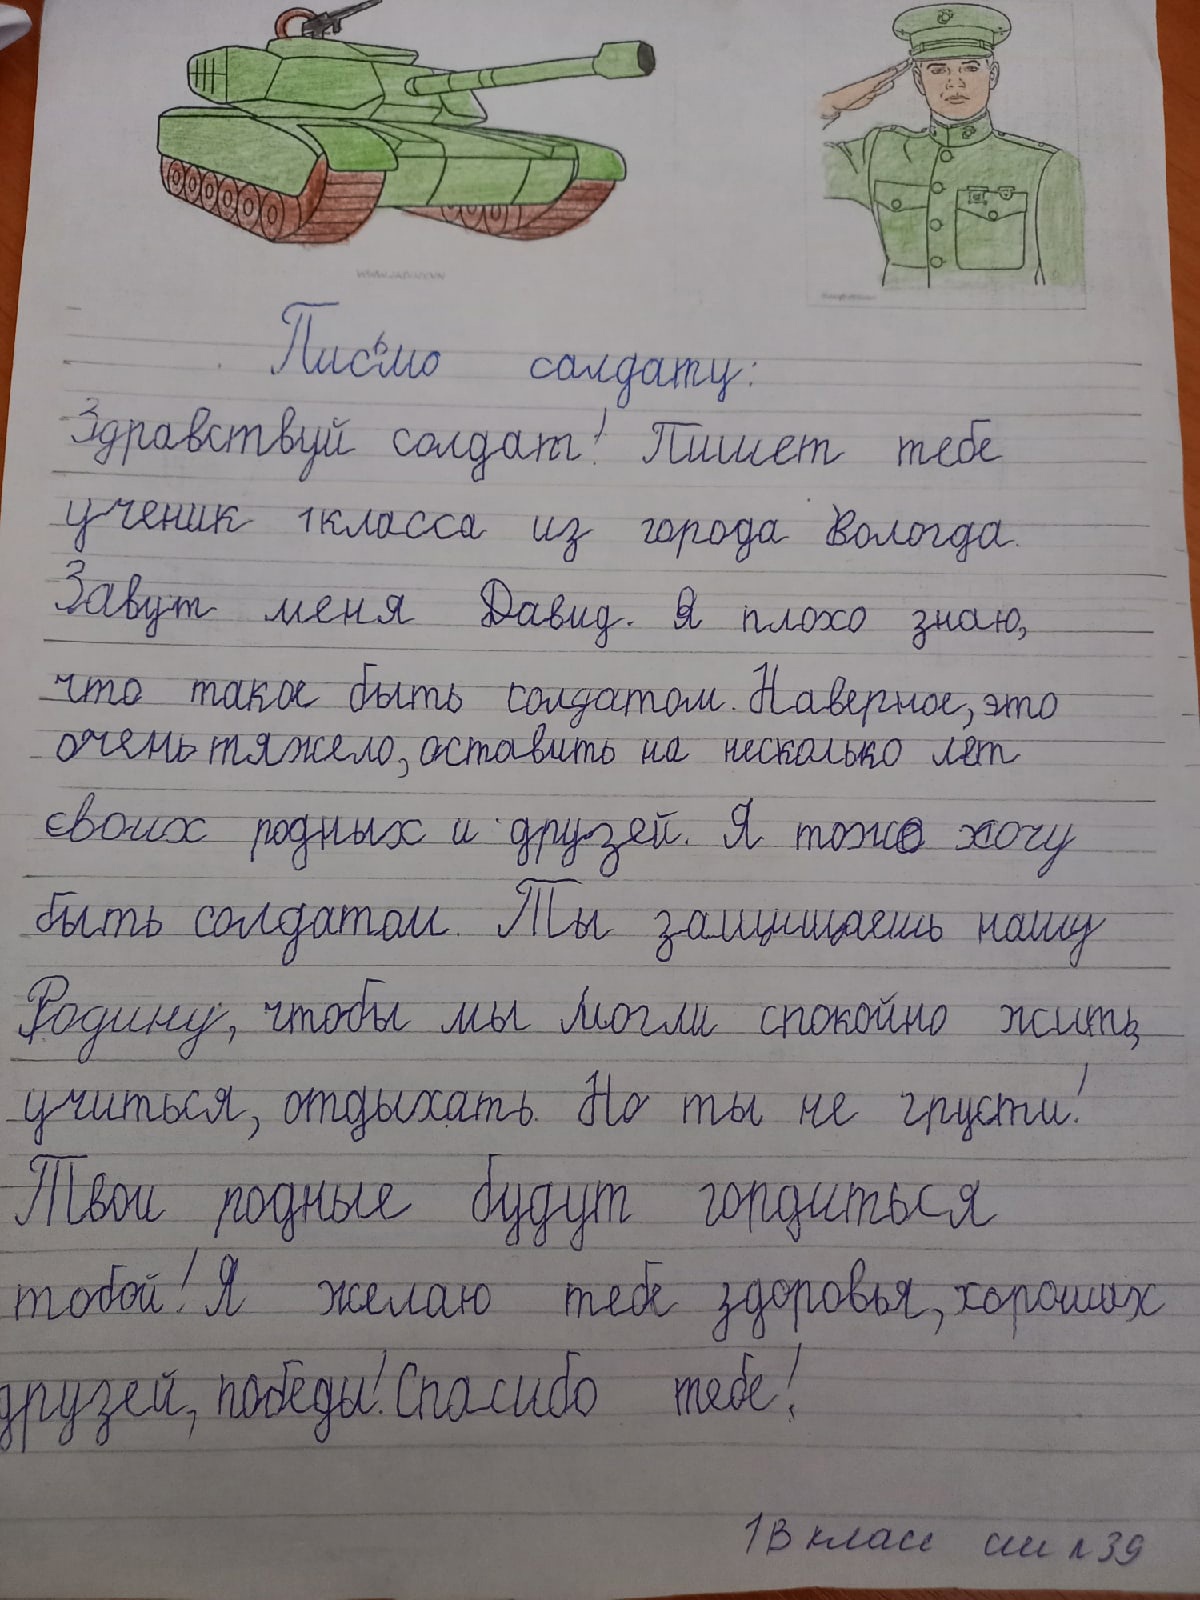 Письмо солдату:
Здравствуй солдат! Пишет тебе
ученик 1 класса из города Вологда.
Завут меня Давид. Я плохо знаю,
что такое быть солдатом. Наверное, это
очень тяжело, оставить на несколько лет
своих родных и друзей. Я тоже хочу
быть солдатом. Ты защищаешь нашу
Родину, чтобы мы могли спокойно жить,
учиться, отдыхать. Но ты не грусти!
Твои родные будут гордиться
тобой! Я желаю тебе здоровья, хороших
друзей, победы! Спасибо тебе!
1В класс 39